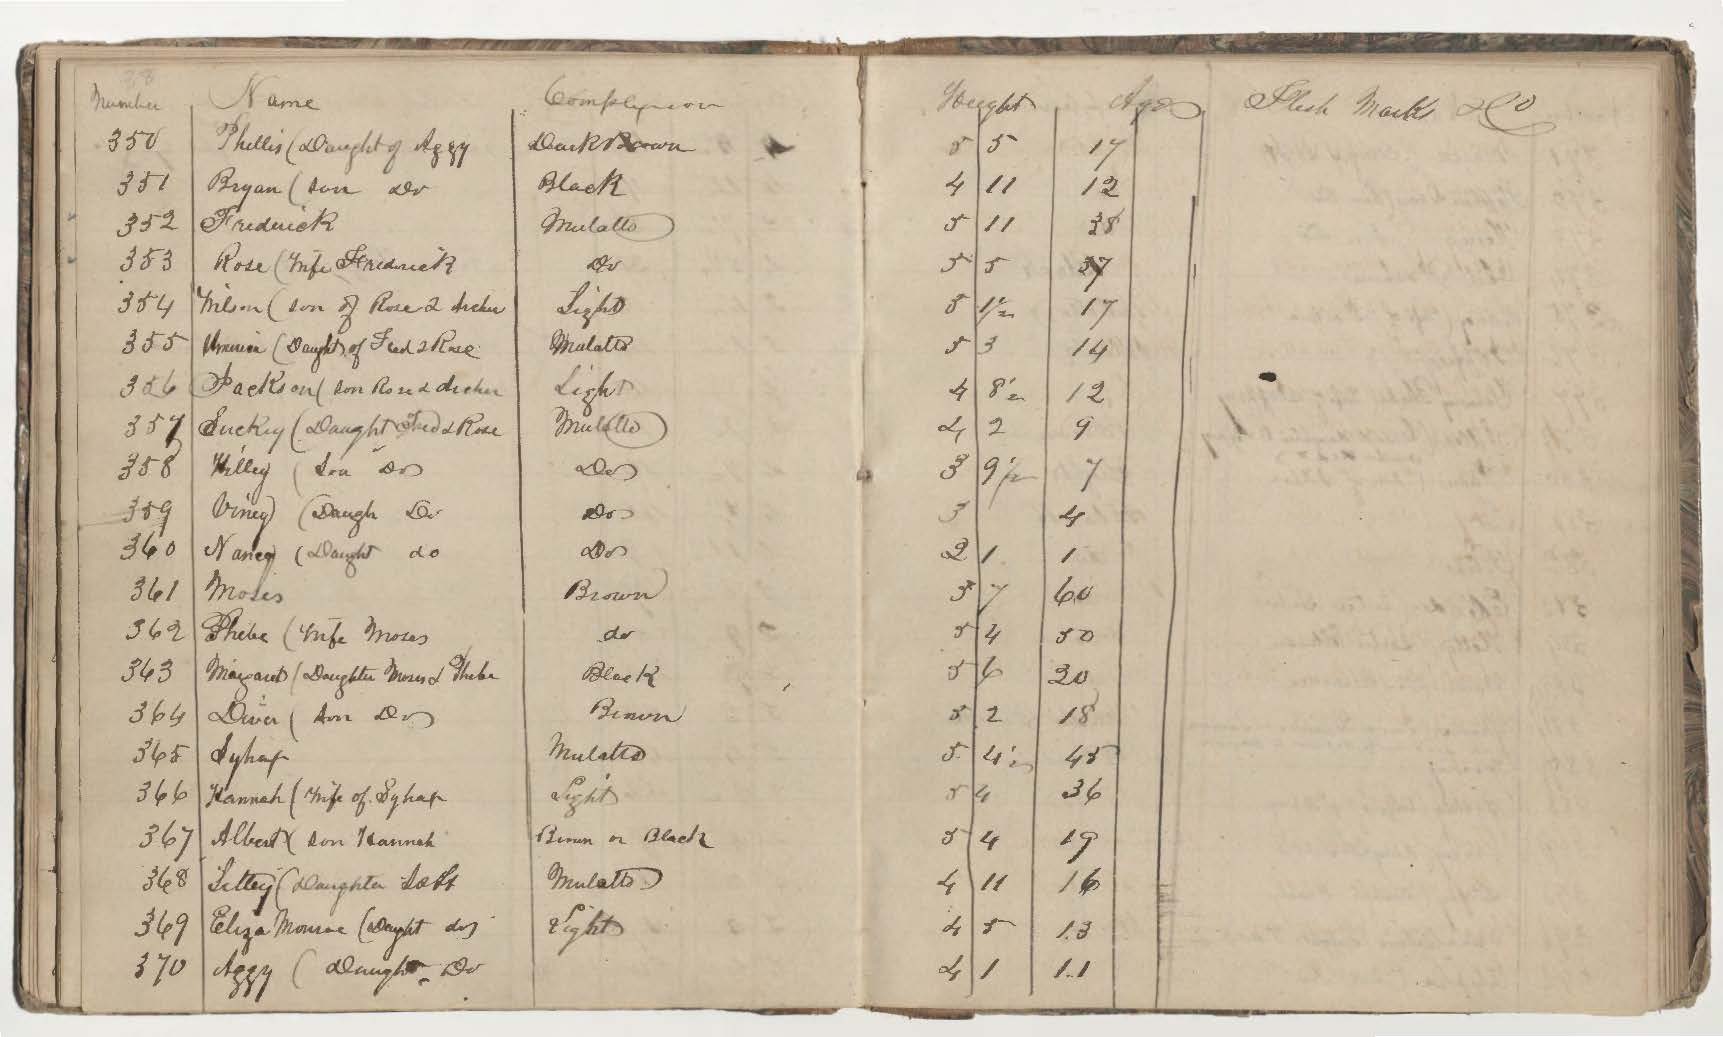 38
Number Name Complexion Height Age Flesh Marks &Co
350 Phillis (Daught of Aggy Dark Brown 5 5 17
351 Bryan (son Do Black 4 11 12
352 Frederick Mulatto 5 11 38
353 Rose (Wife Frederick Do 5 5 37
354 Wilson (son of Rose & Archer Light 5 1½ 17
355 (Daught of Fred & Rose Mulatto 5 3 14
356 Jackson (son Rose & Archer Light 4 8½ 12
357 Suckey (Daught Fred & Rose Mulatto 4 2 9
358 Willey (Son Do Do 3 9½ 7
359 Viney (Daugh Do Do 3 4
360 Nancy (Daught do Do 2 1 1
361 Moses Brown 5 7 60
362 Phebe (Wife Moses do 5 4 50
363 Margaret (Daughter Moses & Phebe Black 5 6 20
364 Diver (son Do Brown 5 2 18
365 Syhax Mulatto 5 4½ 45
366 Hannah (Wife of Syhax Light 5 4 36
367 Albert (son Hannah Brown or Black 5 4 19
368 Littey (Daughter Mulatto 4 11 16
369 Eliza Monroe (Daught do Light 4 5 13
370 Aggy (Daught Do 4 1 11